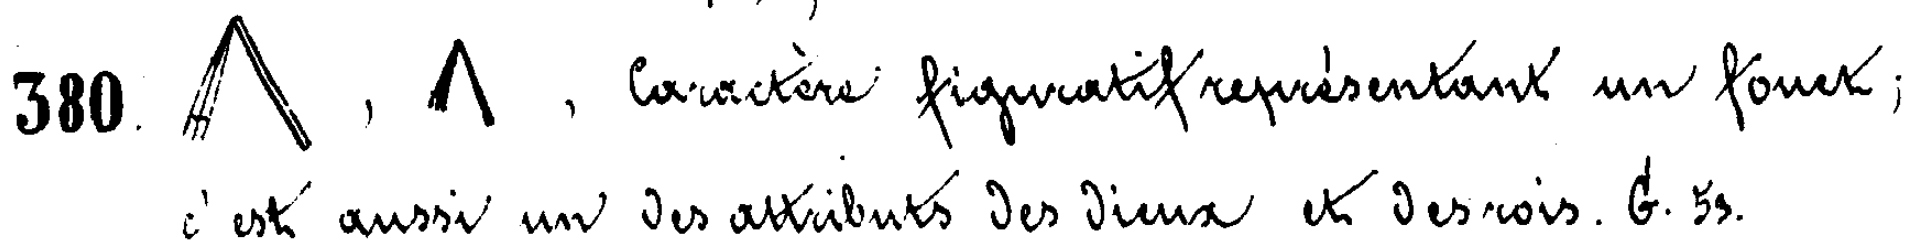 380. , , Caractère figuratif représentant un fouet;
c'est aussi un des attributs des Dieux et des rois. G. 53.